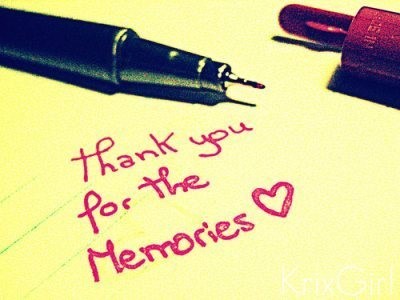 thank you
for the
Memories
KrixGirl